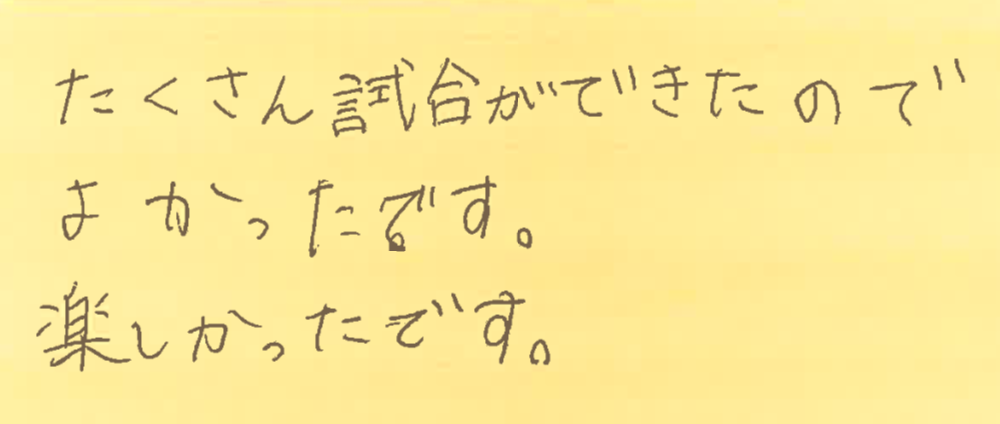 たくさん試合ができたので
よかったです。
楽しかったです。